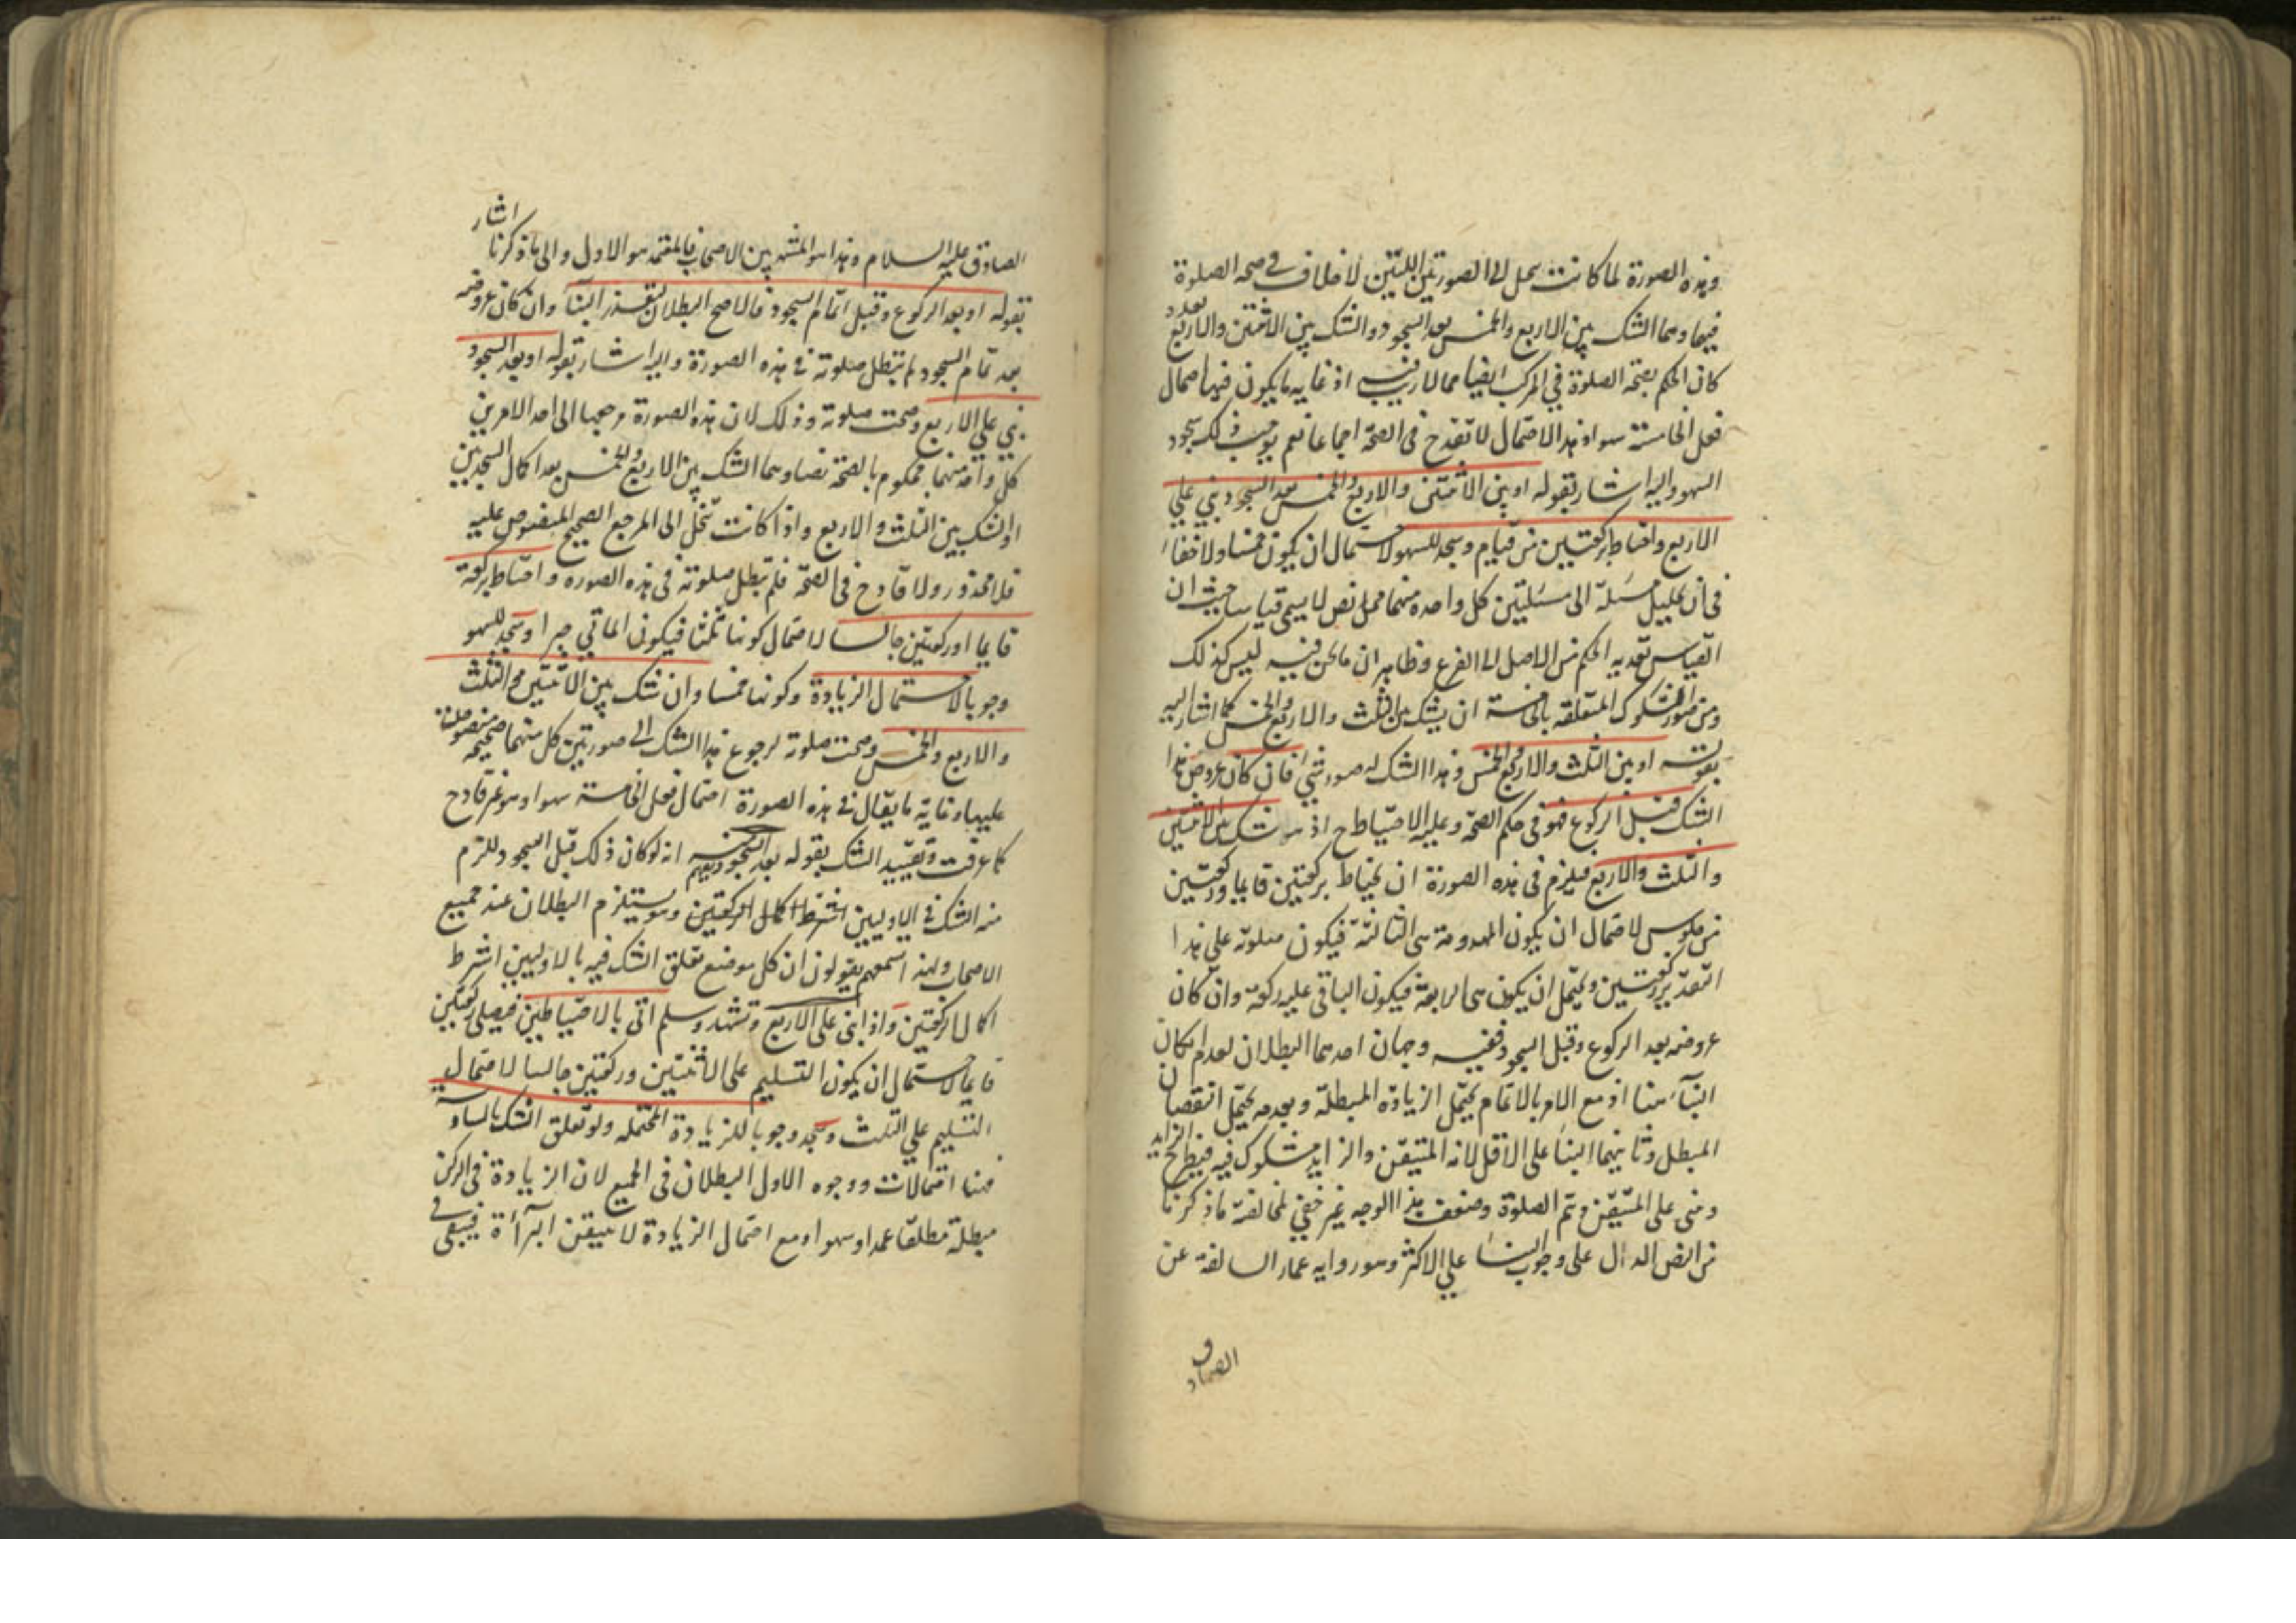 وهذه الصورة لما كانت تنحل الى الصورتين اللتين لا خلاف في صحة الصلوة
فيهما وهما الشك بين الاربع والخمس بعد السجود والشك بين الاثنتين والاربع بعده
كان الحكم بصحة الصلوة في المركب ايضا مما لا ريب فيه اذ غايه ما يكون فيها احتمال
فعل الخامسة سهوا وهذا الاحتمال لا تقدح في الصحة اجماعا نعم يوجب ذلك سجود
السهو واليه اشار بقوله او بين الاثنتين والاربع والخمس بعد السجود بنى على
الاربع واحتاط بركعتين من قيام وسجد للسهو لاحتمال ان يكون خمسا ولا خفاء
في ان تحليل مسئلة الى مسئلتين كل واحده منهما محل نص لا يسمى قياسا حيث ان
القياس تعديه الحكم من الاصل الى الفرع وظاهر ان ما نحن فيه ليس كذلك
ومن صور الشكوك المتعلقه بالخامسة ان يشك بين الثلث والاربع والخمس كما اشار اليه
بقوله او بين الثلث والاربع والخمس وهذا الشك له صور شتى فان كان عروض هذا
الشك قبل الركوع فهو في حكم الصحة وعليه الاحتياط ح اذ هو شك بين الاثنتين
والثلث والاربع فيلزم في هذه الصورة ان يحتاط بركعتين قايما وركعتين
من جلوس لاحتمال ان يكون المهدومة هي الثالثة فيكون صلوته على هذا
التقدير ركعتين ويحتمل ان يكون هي الرابعة فيكون الباقي عليه ركعة وان كان
عروضه بعد الركوع وقبل السجود ففيه وجهان احدهما البطلان لعدم امكان
البناء هنا اذ مع الامر بالاتمام يحتمل الزيادة المبطلة وبعدمه يحتمل النقصان
المبطل وثانيهما البنا على الاقل لانه المتيقن والزايد مشكوك فيه فيطرح الزايد
وبنى على المتيقن ويتم الصلوة وضعف هذا الوجه غير خفي لمخالفة ما ذكرنا
من النص الدال على وجوب البنا على الاكثر وهو روايه عمار السالفة عن
الصادق
اشار
الصادق عليه السلام وهذا هو المشهور بين الاصحاب فالمعتمد هو الاول والى ما ذكرنا
بقوله او بعد الركوع وقبل اتمام السجود فالاصح البطلان لتعذر البنا وان كان عروضه
بعد تمام السجود لم تبطل صلوته في هذه الصورة واليه اشار بقوله او بعد السجود
بنى على الاربع وصحت صلوته وذلك لان هذه الصورة مرجعها الى احد الامرين
كل واحد منهما محكوم بالصحة نصا وهما الشك بين الاربع والخمس بعد اكمال السجدتين
او الشك بين الثلث والاربع واذا كانت تنحل الى المرجع الصحيح المنصوص عليه
فلا محذور ولا قادح في الصحة فلم تبطل صلوته في هذه الصورة واحتاط بركعة
قايما او ركعتين جالسا لاحتمال كونها ثلثا فيكون الماتي جبرا وسجد للسهو
وجوبا لاحتمال الزيادة وكونها خمسا وان شك بين الاثنتين والثلث
والاربع والخمس وصحت صلوته لرجوع هذا الشك الى صورتين كل منهما صحيحة منصوصا
عليها وغاية ما يقال في هذه الصورة احتمال فعل الخامسة سهوا وهو غير قادح
كما عرفت وتقييد الشك بقوله بعد السجود يفهم منه انه لو كان ذلك قبل السجود للزم
منه الشك في الاوليين اشترط اكمال الركعتين وهو يستلزم البطلان عند جميع
الاصحاب ولهذا اسمعهم يقولون ان كل موضع تعلق الشك فيه بالاوليين اشترط
اكمال الركعتين واذا بنى على الاربع وتشهد وسلم اتى بالاحتياطين فيصلى ركعتين
قايما لاحتمال ان يكون التسليم على الاثنتين وركعتين جالسا لاحتمال
التسليم على الثلث وسجد وجوبا للزيادة المحتمله ولو تعلق الشك بالسادسة
فهنا احتمالات ووجوه الاول البطلان في الجميع لان الزيادة في الركن
مبطلة مطلقا عمدا وسهوا ومع احتمال الزيادة لا يتيقن البرآءة فيبقى في